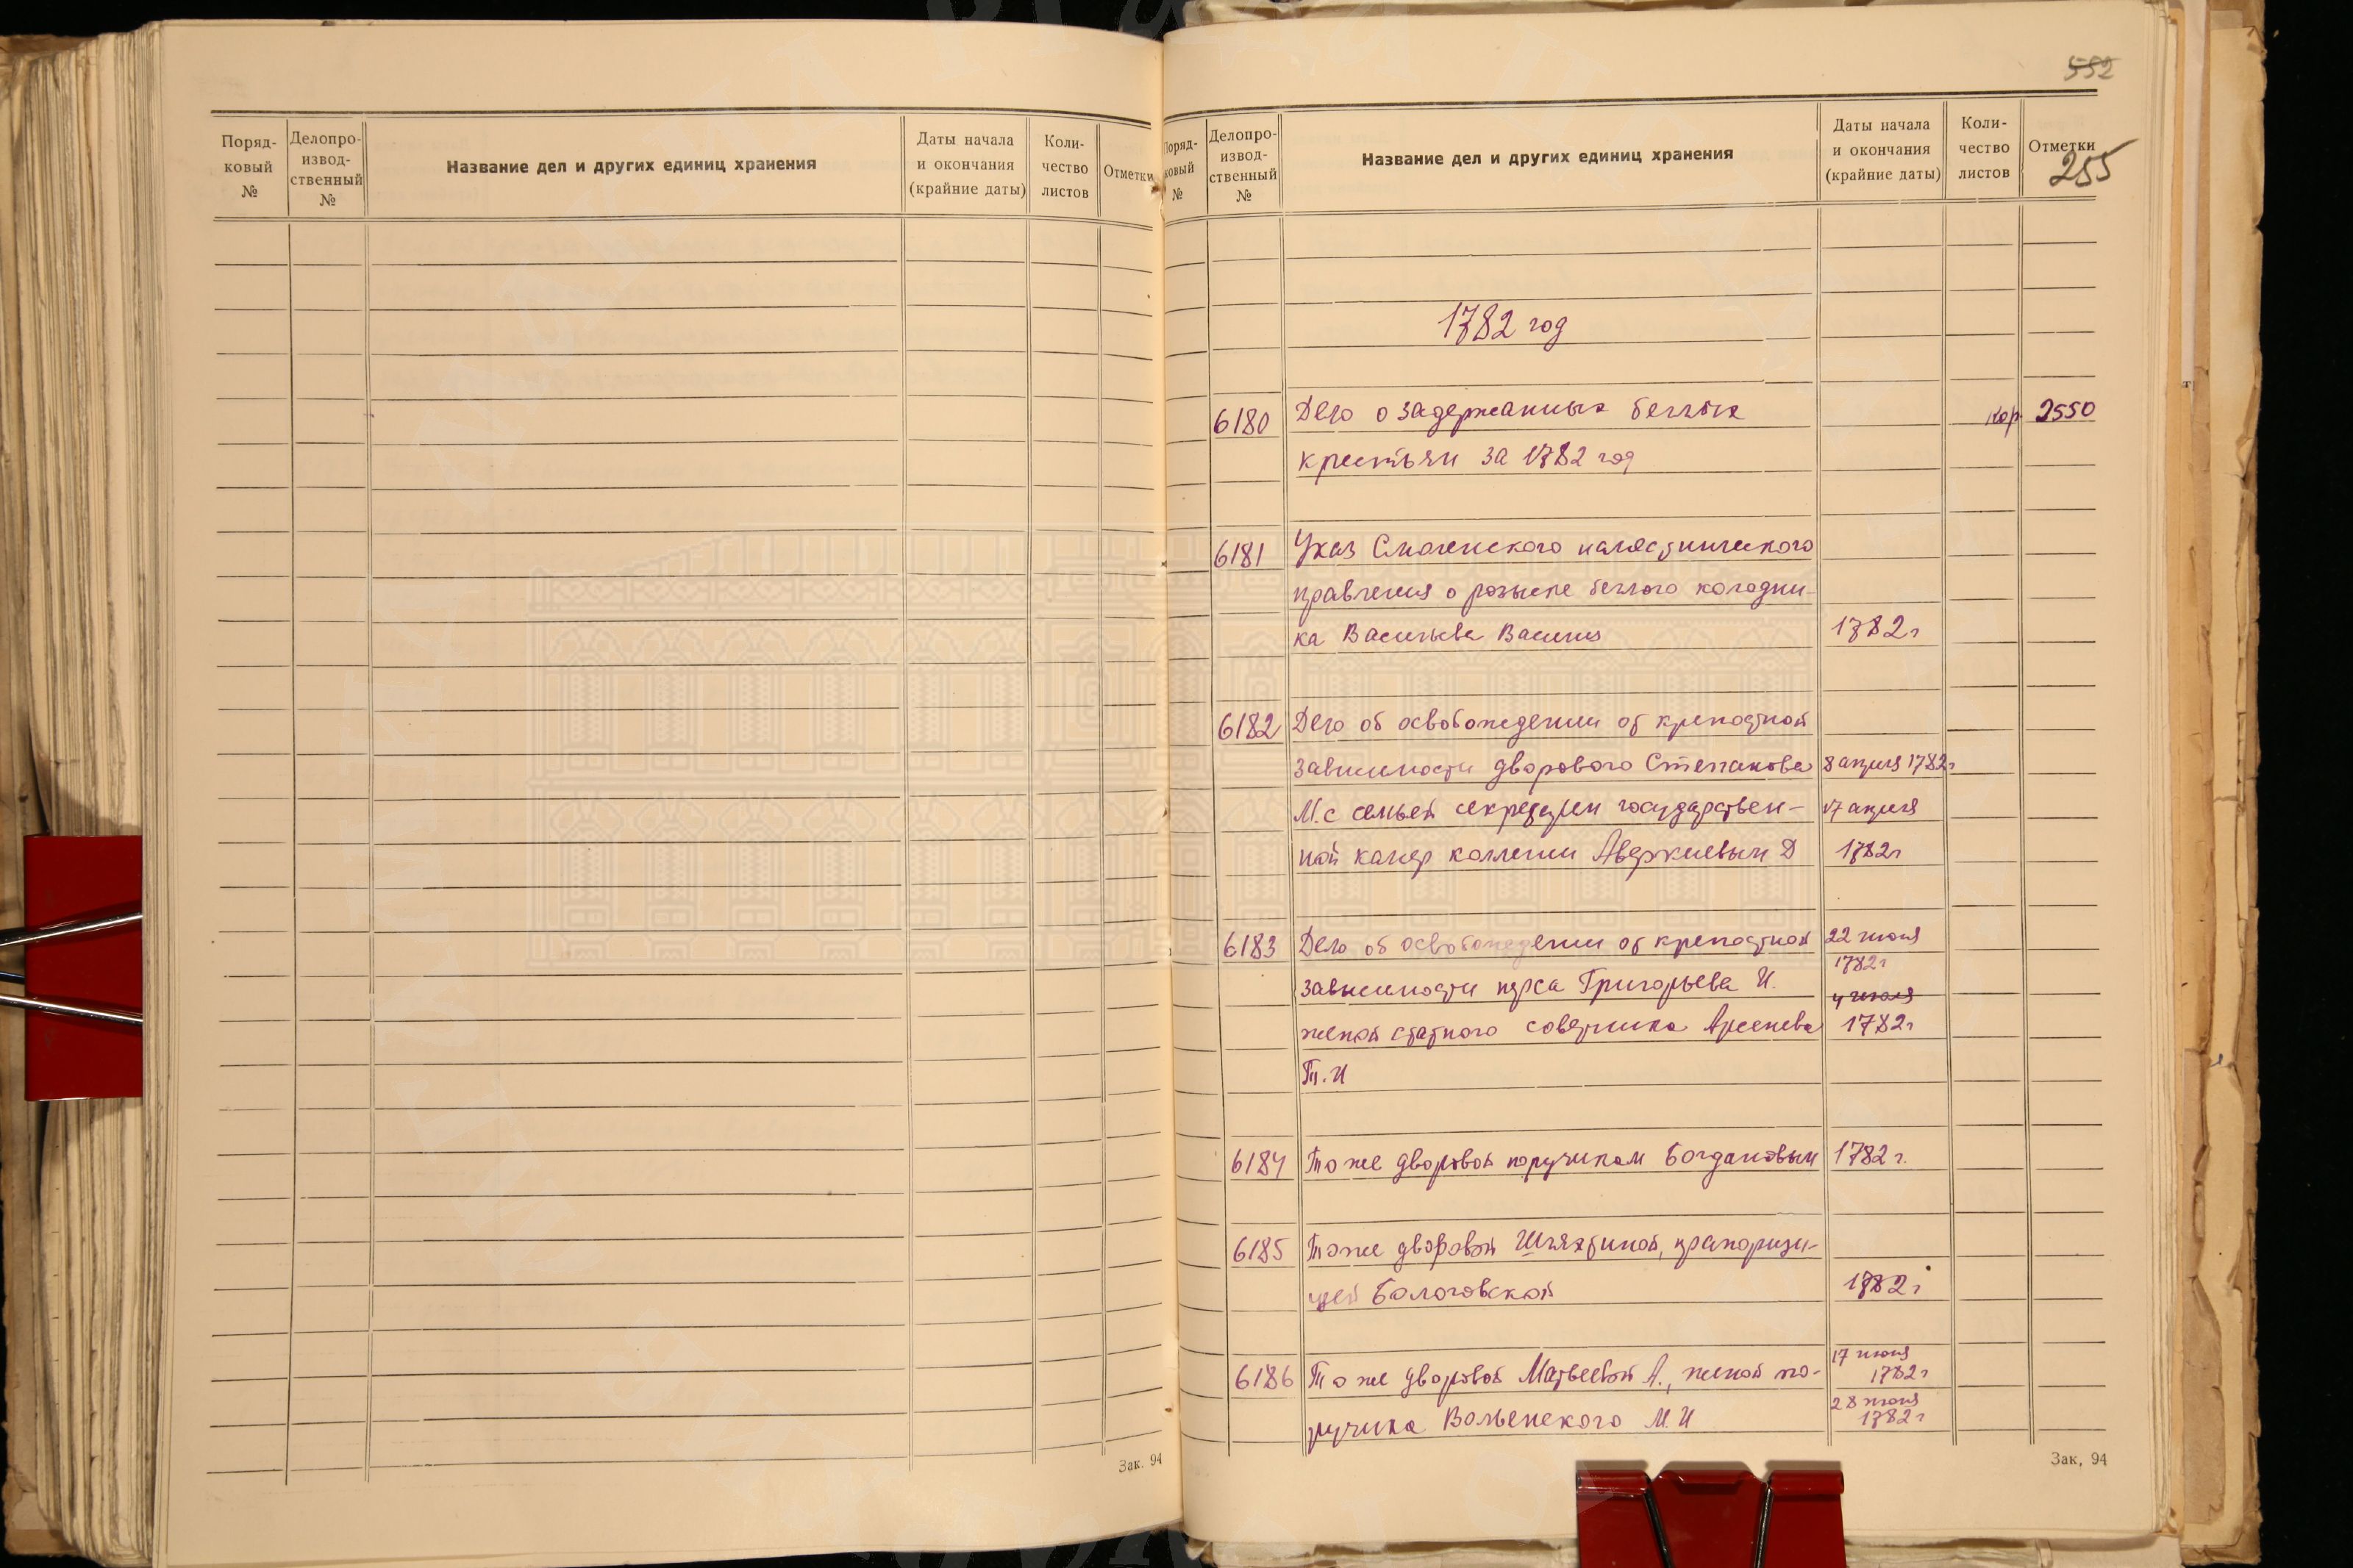 Поряд-
ковый
№
Делопро-
извод-
ственный
№
Название дел и других единиц хранения
Даты начала
и окончания
(крайние даты)
Коли-
чество
листов
Отметки
Зак. 94
552
Поряд-
ковый
№
Делопро-
извод-
ственный
№
Название дел и других единиц хранения
Даты начала
и окончания
(крайние даты)
Коли-
чество
листов
Отметки
255
1782 год
6180 Дело о задержанных беглых кор. 2550
крестьян за 1782 год
6181 Указ Смоленского наместнического
правления о розыске беглого колодни-
ка Васильева Василия 1782г
6182 Дело об освобождении от крепостной
зависимости дворового Степанова 8 апреля 1782г
М. с семьей секретарем государствен- 17 апреля
ной камер коллегии Аверкиевым Д 1782г
6183 Дело об освобождении от крепостной 22 июня
1782г
зависимости перса Григорьева И.
4 июля
женой статного советника Арсенева 1782г
Т.И
6184 То же дворовой поручиком Богдановым 1782 г.
6185 То же дворовой Шляхтиной, прапорщи-
цей Бологовской 1782г
17 июня
6186 То же дворовой Матвеевой А., женой по- 1782г
28 июня
ручика Волженского М.И 1782г
Зак. 94